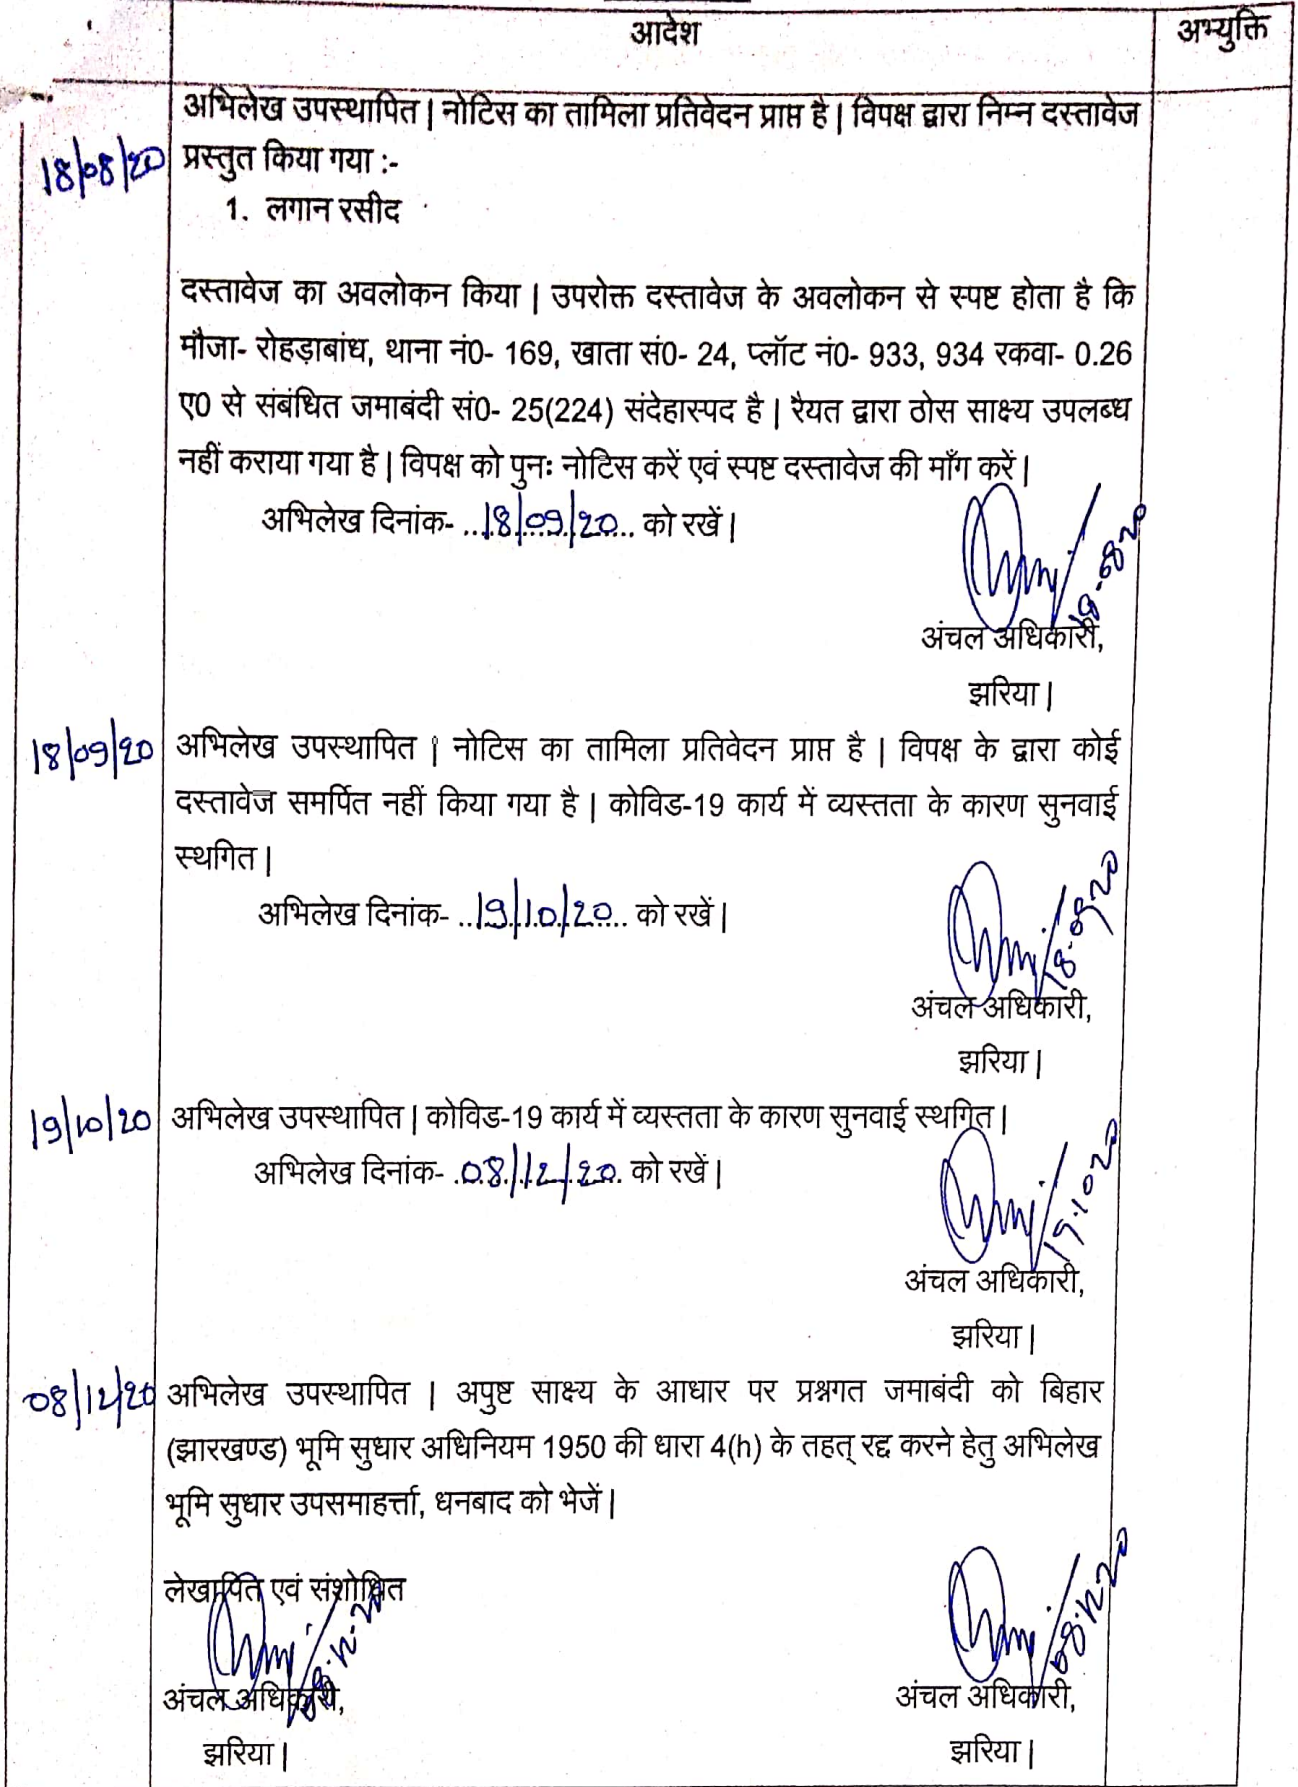 आदेश
अभ्युक्ति
18/08/20
अभिलेख उपस्थापित | नोटिस का तामिला प्रतिवेदन प्राप्त है | विपक्ष द्वारा निम्न दस्तावेज
प्रस्तुत किया गया :-
1. लगान रसीद
दस्तावेज का अवलोकन किया | उपरोक्त दस्तावेज के अवलोकन से स्पष्ट होता है कि
मौजा- रोहड़ाबांध, थाना नं0- 169, खाता सं0- 24, प्लॉट नं0- 933, 934 रकवा- 0.26
ए0 से संबंधित जमाबंदी सं0- 25(224) संदेहास्पद है | रैयत द्वारा ठोस साक्ष्य उपलब्ध
नहीं कराया गया है | विपक्ष को पुनः नोटिस करें एवं स्पष्ट दस्तावेज की माँग करें |
अभिलेख दिनांक- ..18/09/20.. को रखें |
18-0820
अंचल अधिकारी,
झरिया |
18/09/20
अभिलेख उपस्थापित | नोटिस का तामिला प्रतिवेदन प्राप्त है | विपक्ष के द्वारा कोई
दस्तावेज समर्पित नहीं किया गया है | कोविड-19 कार्य में व्यस्तता के कारण सुनवाई
स्थगित |
अभिलेख दिनांक- ..19/10/20.. को रखें |
18-0920
अंचल अधिकारी,
झरिया |
19/10/20
अभिलेख उपस्थापित | कोविड-19 कार्य में व्यस्तता के कारण सुनवाई स्थगित |
अभिलेख दिनांक- .08/12/20. को रखें |
19.1020
अंचल अधिकारी,
झरिया |
08/12/20
अभिलेख उपस्थापित | अपुष्ट साक्ष्य के आधार पर प्रश्नगत जमाबंदी को बिहार
(झारखण्ड) भूमि सुधार अधिनियम 1950 की धारा 4(h) के तहत् रद्द करने हेतु अभिलेख
भूमि सुधार उपसमाहर्त्ता, धनबाद को भेजें |
लेखापित एवं संशोधित
08.12.20
08.12.20
अंचल अधिकारी,
अंचल अधिकारी,
झरिया |
झरिया |